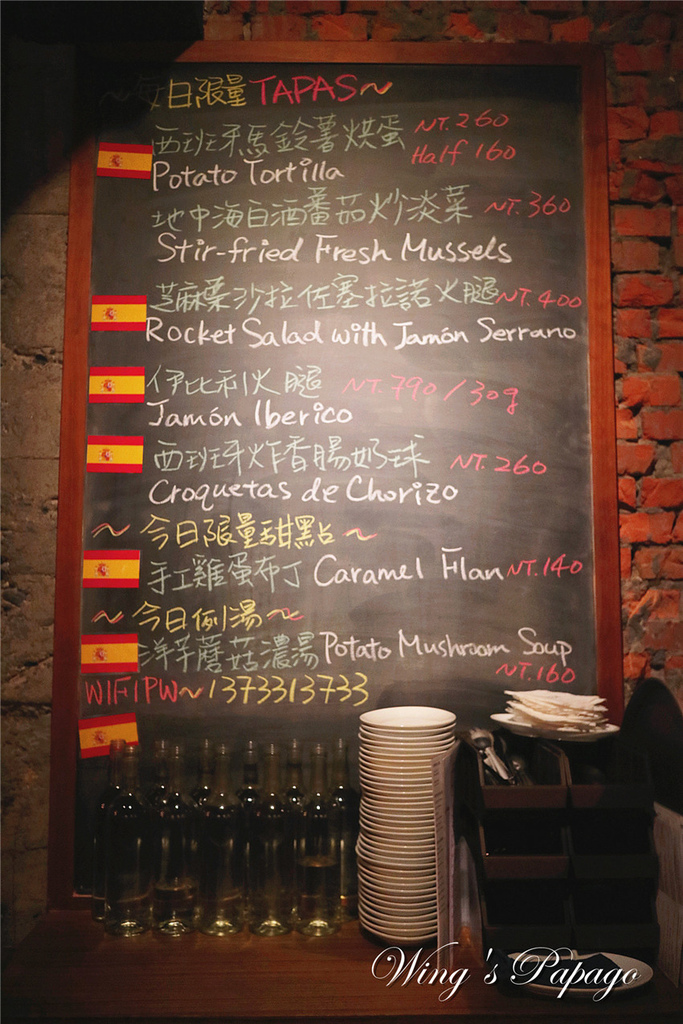 ~每日限量TAPAS~
西班牙馬鈴薯烘蛋 NT.260
Half 160
Potato Tortilla
地中海白酒蕃茄炒淡菜 NT.360
Stir-fried Fresh Mussels
芝麻葉沙拉佐塞拉諾火腿 NT.400
Rocket Salad with Jamón Serrano
伊比利火腿 NT.790/30g
Jamón Iberico
西班牙炸香腸奶球 NT.260
Croquetas de Chorizo
~今日限量甜點~
手工雞蛋布丁 Caramel Flan NT.140
~今日例湯~
洋芋蘑菇濃湯 Potato Mushroom Soup
NT.160
WIFI PW~1373313733
Wing's Papago